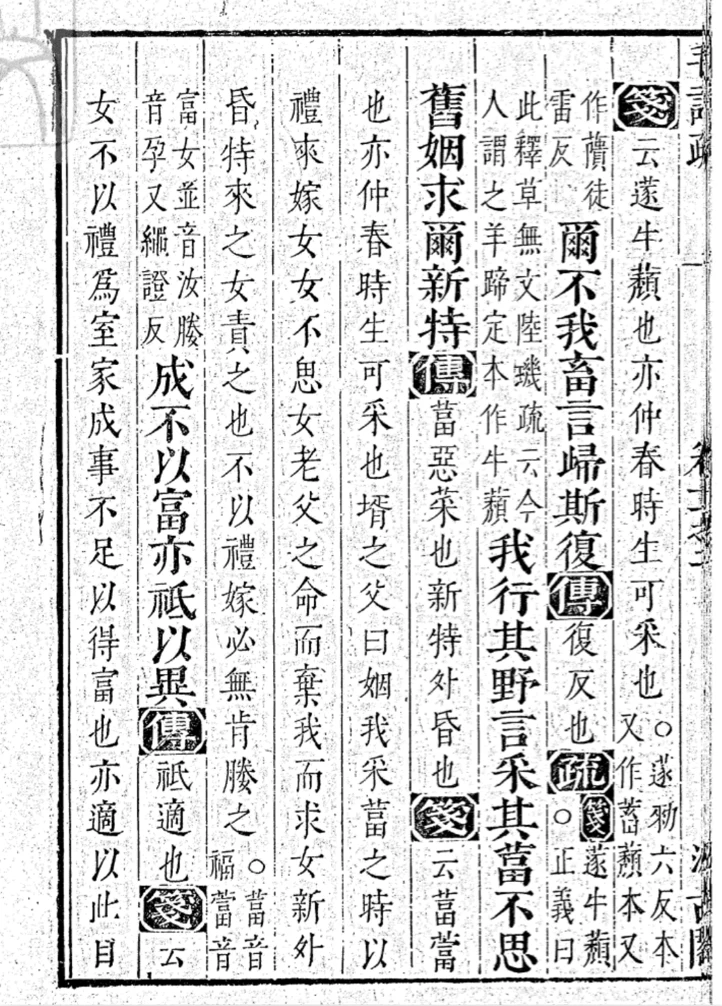 箋云蓫牛蘈也亦仲春時生可采也○蓫勑六反本又作蓄蘈本又
作藬徒雷反爾不我畜言歸斯復傳復反也疏箋蓫牛蘈○正義曰
此釋草無文陸璣疏云今人謂之羊蹄定本作牛蘈我行其野言采其葍不思
舊姻求爾新特傳葍惡菜也新特外昏也箋云葍䔰
也亦仲春時生可采也壻之父曰姻我采葍之時以
禮來嫁女女不思女老父之命而棄我而求女新外
昏特來之女責之也不以禮嫁必無肯媵之○葍音福䔰音
富女並音汝媵音孕又繩證反成不以富亦祇以異傳祇適也箋云
女不以禮爲室家成事不足以得富也亦適以此自